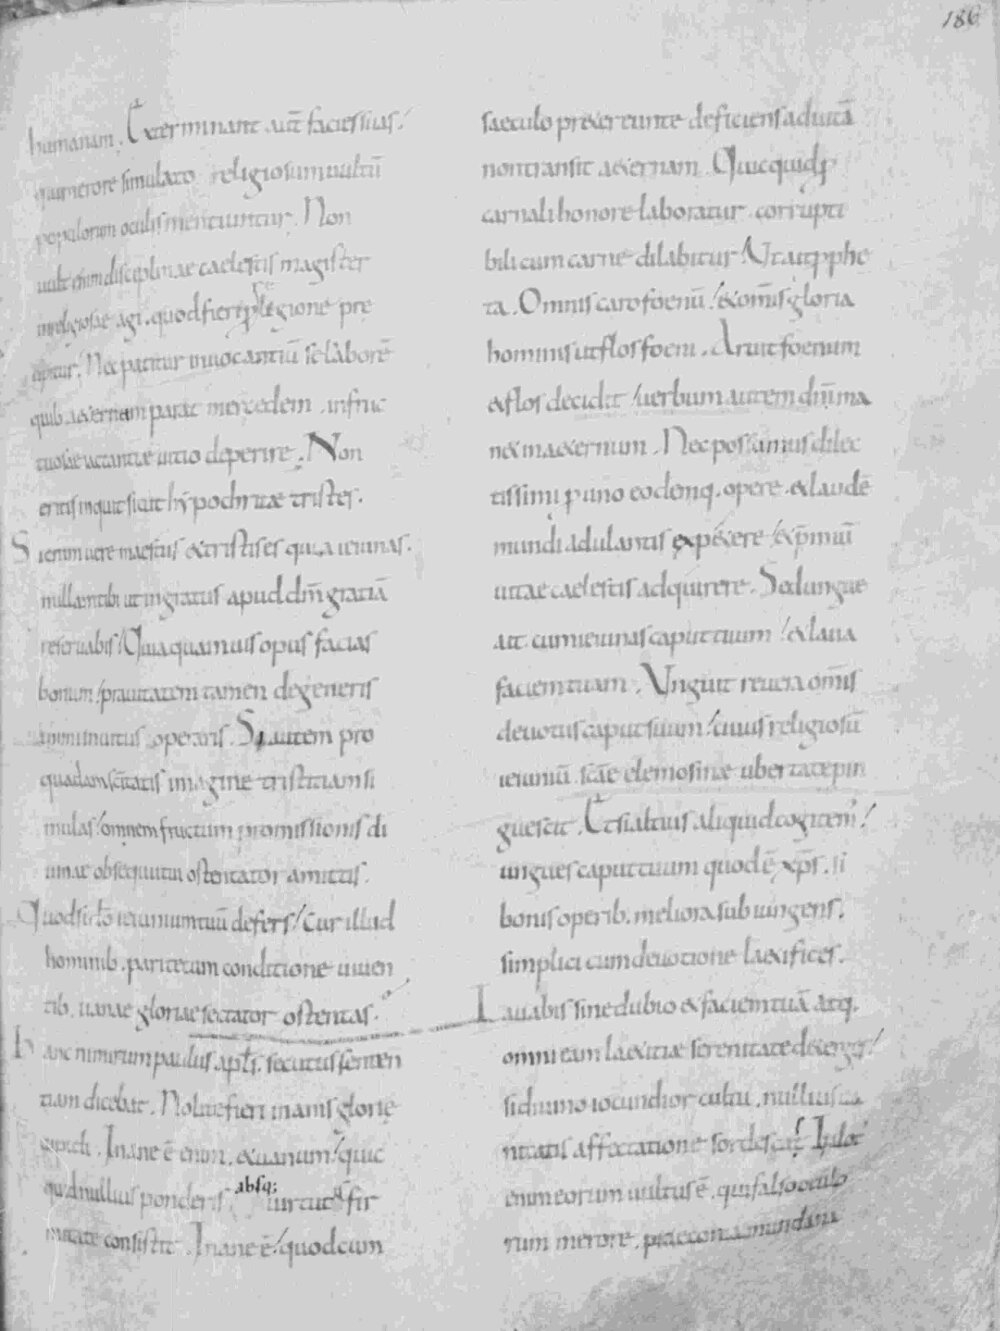 186
humanam. Exterminant aut̄ facies suas /
qui merore simulato religiosum uultū
populorum oculis mentiuntur. Non
uult enim disciplinae caelestis magister
inreligiose agi. quod fieri religione pre
cipitur. Nec patitur inuocantiū se laborē
quib. aeternam parat mercedem. infruc
tuosae iactantiae uitio deperire. Non
eritis inquit sicut hypochritae tristes.
Si enim uere maestus & tristis es quia ieiunas.
nullam tibi ut ingratus apud dm̄ gratiā
reseruabis / Quia quamuis opus facias
bonum / prauitatem tamen degeneris
animi inuitus operaris. Si autem pro
quadam sc̄itatis imagine tristitiam si
mulas / omnem fructum promissionis di
uinae obsequutui ostentator amittis.
Quod si dō ieiunium tuū defers / Cur illud
hominib. pari tecum conditione uiuen
tib. uanae gloriae sectator ostentas.
Hanc nimirum paulus apl̄s. secutus senten
tiam dicebat. Nolite fieri inanis glorię
cupidi. Inane ē enim. & uanum / quic
quid nullius ponderis absq; uirtutis fir
mitate consistit. Inane ē / quod cum
saeculo praetereunte deficiens ad uitā
non transit aeternam. Quicquid p
carnali honore laboratur. corrupti
bili cum carne dilabitur. Ut ait pphe
ta. Omnis caro foenū / & om̄is gloria
hominis ut flos foeni. Aruit foenum
& flos decidit / uerbum autem dn̄i ma
net in aeternum. Nec possumus dilec
tissimi p uno eodemq. opere. & laudē
mundi adulantis expetere / & p̄miū
uitae caelestis adquirere. Sed ungue
ait. cum ieiunas caput tuum / & laua
faciem tuam. Unguit reuera om̄is
deuotus caput suum / cuius religiosū
ieiuniū. sc̄ae elemosinae ubertate pin
guescit. Et si altius aliquid cogitem' /
ungues caput tuum quod ē xp̄s. si
bonis operib. meliora subiungens.
simplici cum deuotione laetifices.
Lauabis sine dubio & faciem tuā atq.
omni eam laetitiae serenitate deterges /
si diuino iocundior cultu. nullius ua
nitatis affectatione sordescas. In loc'
enim eorum uultus ē. qui falso oculo
rum merore. praeconia mundana